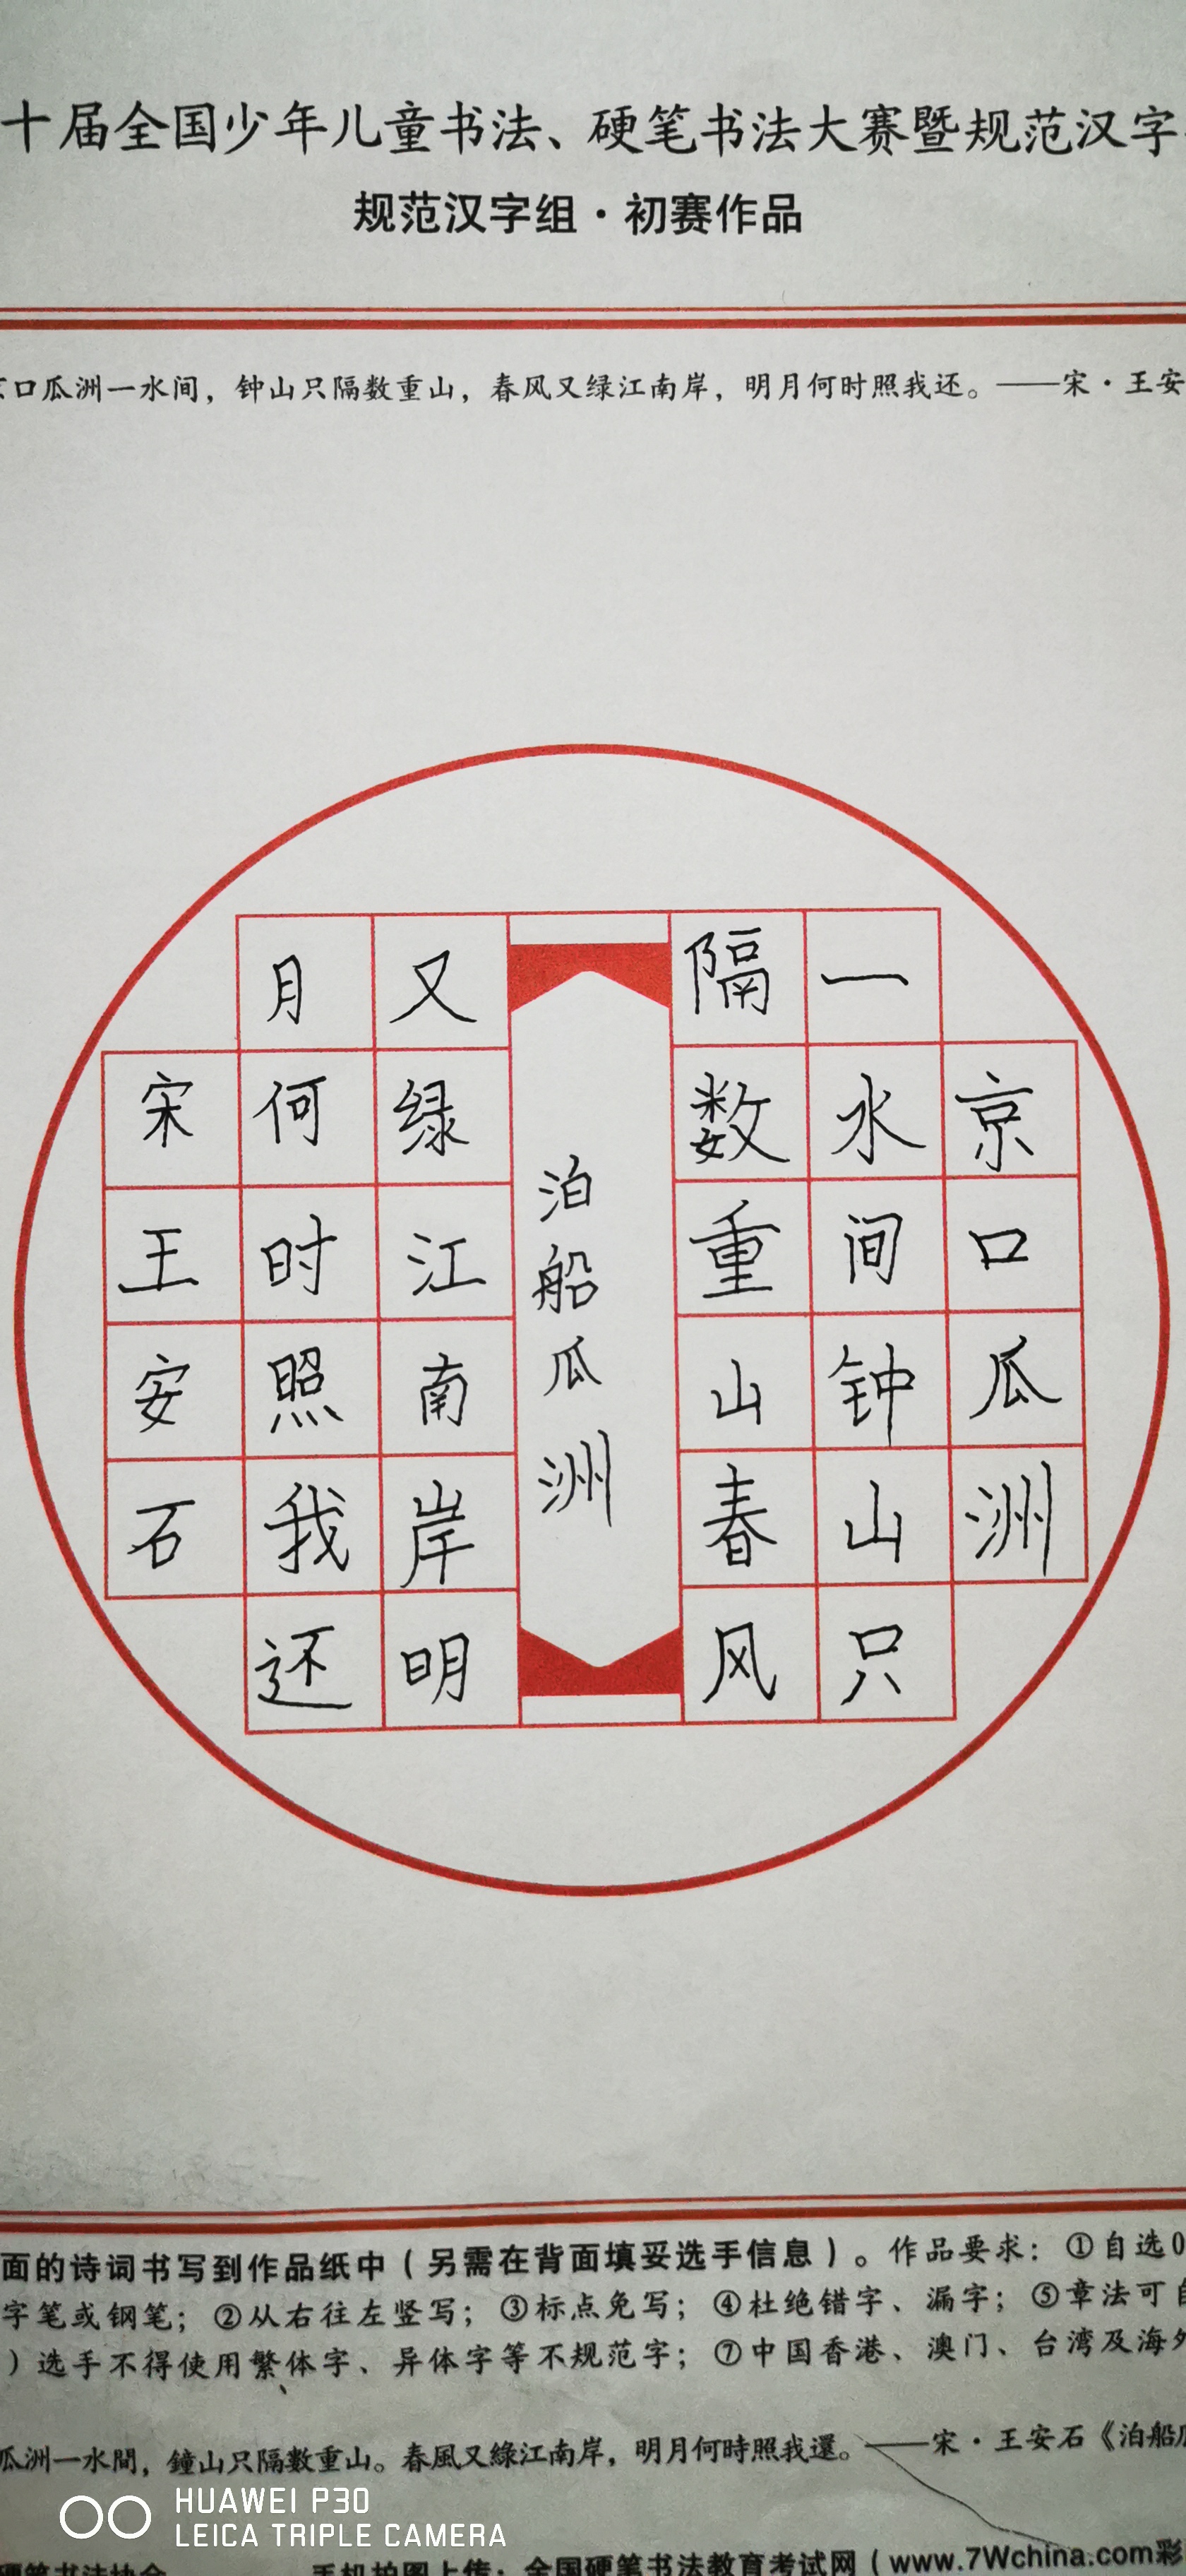 十届全国少年儿童书法、硬笔书法大赛暨规范汉字
规范汉字组·初赛作品
口瓜洲一水间，钟山只隔数重山，春风又绿江南岸，明月何时照我还。——宋·王安
京口瓜洲
一水间钟山只
隔数重山春风
泊船瓜洲
又绿江南岸明
月何时照我还
宋王安石
面的诗词书写到作品纸中（另需在背面填妥选手信息）。作品要求：①自选0
字笔或钢笔；②从右往左竖写；③标点免写；④杜绝错字、漏字；⑤章法可自
）选手不得使用繁体字、异体字等不规范字；⑦中国香港、澳门、台湾及海外
瓜洲一水間，鐘山只隔數重山。春風又綠江南岸，明月何時照我還。——宋·王安石《泊船瓜
HUAWEI P30
LEICA TRIPLE CAMERA
硬笔书法协会 手机拍图上传：全国硬笔书法教育考试网（www.7Wchina.com彩